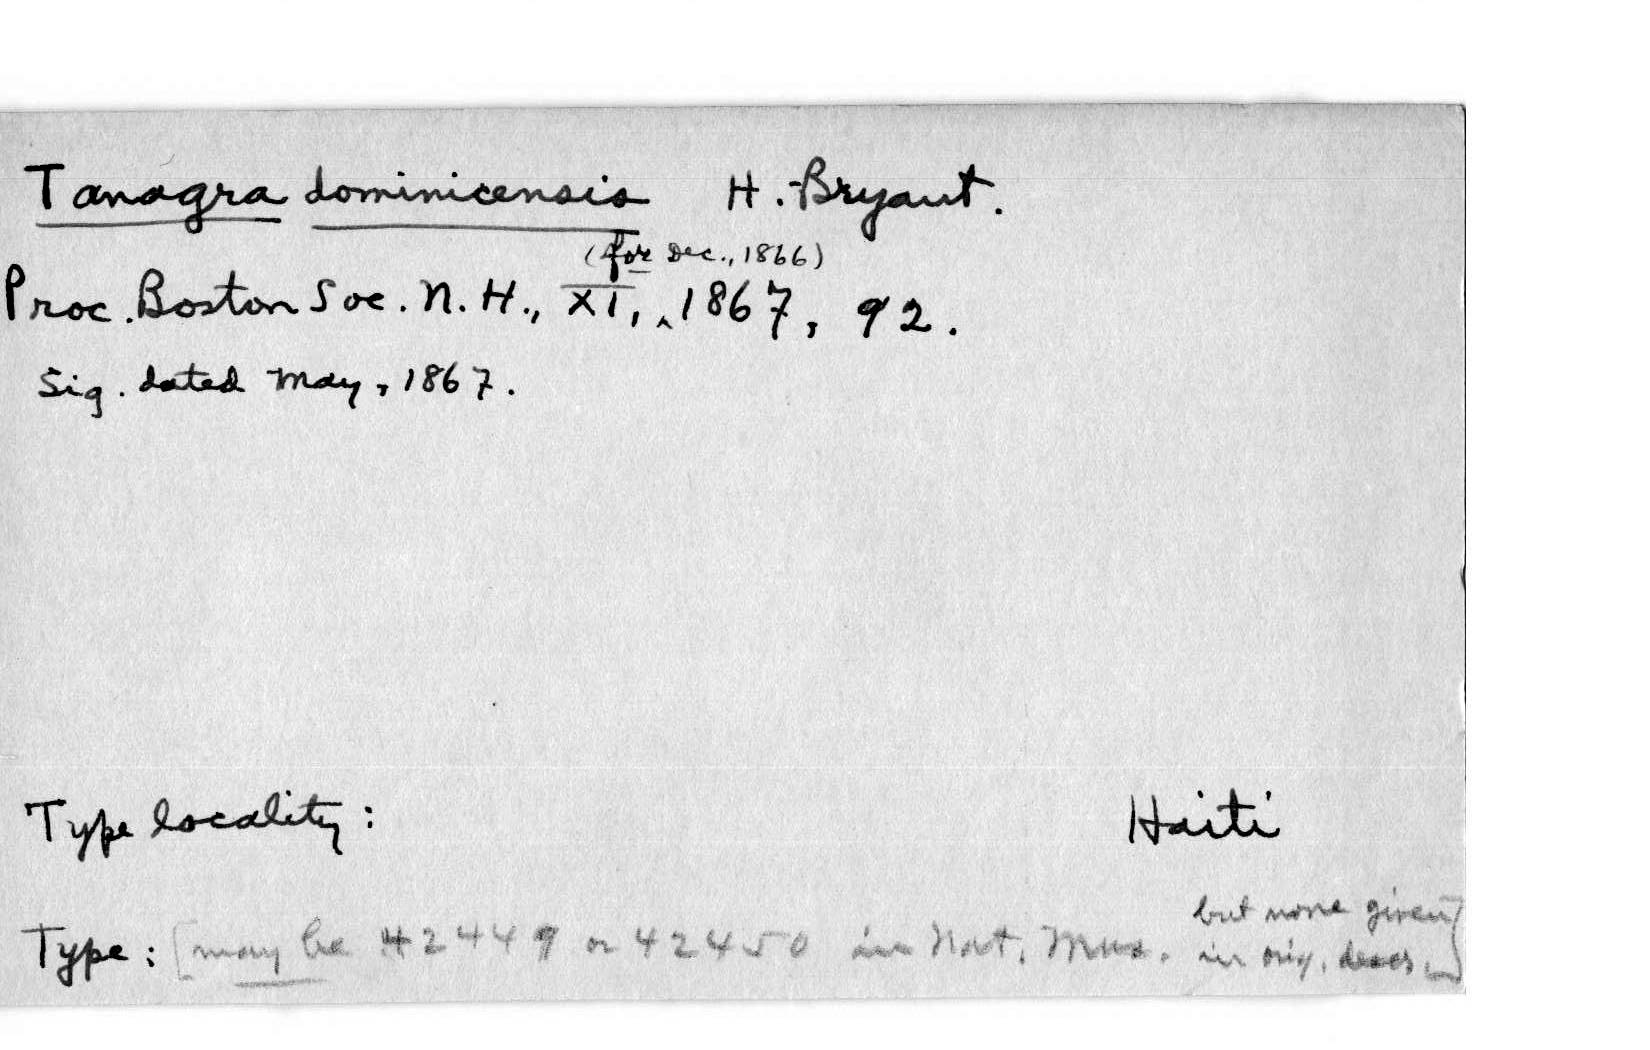 Tanagra dominicensis H. Bryant.
(for Dec., 1866)
Proc. Boston Soc. N. H., XI, ‸1867, 92.
Sig. dated May, 1867.
Type locality: Haiti
but none given
Type: [may be 42449 or 42450 in Nat. Mus. in orig. descr.]